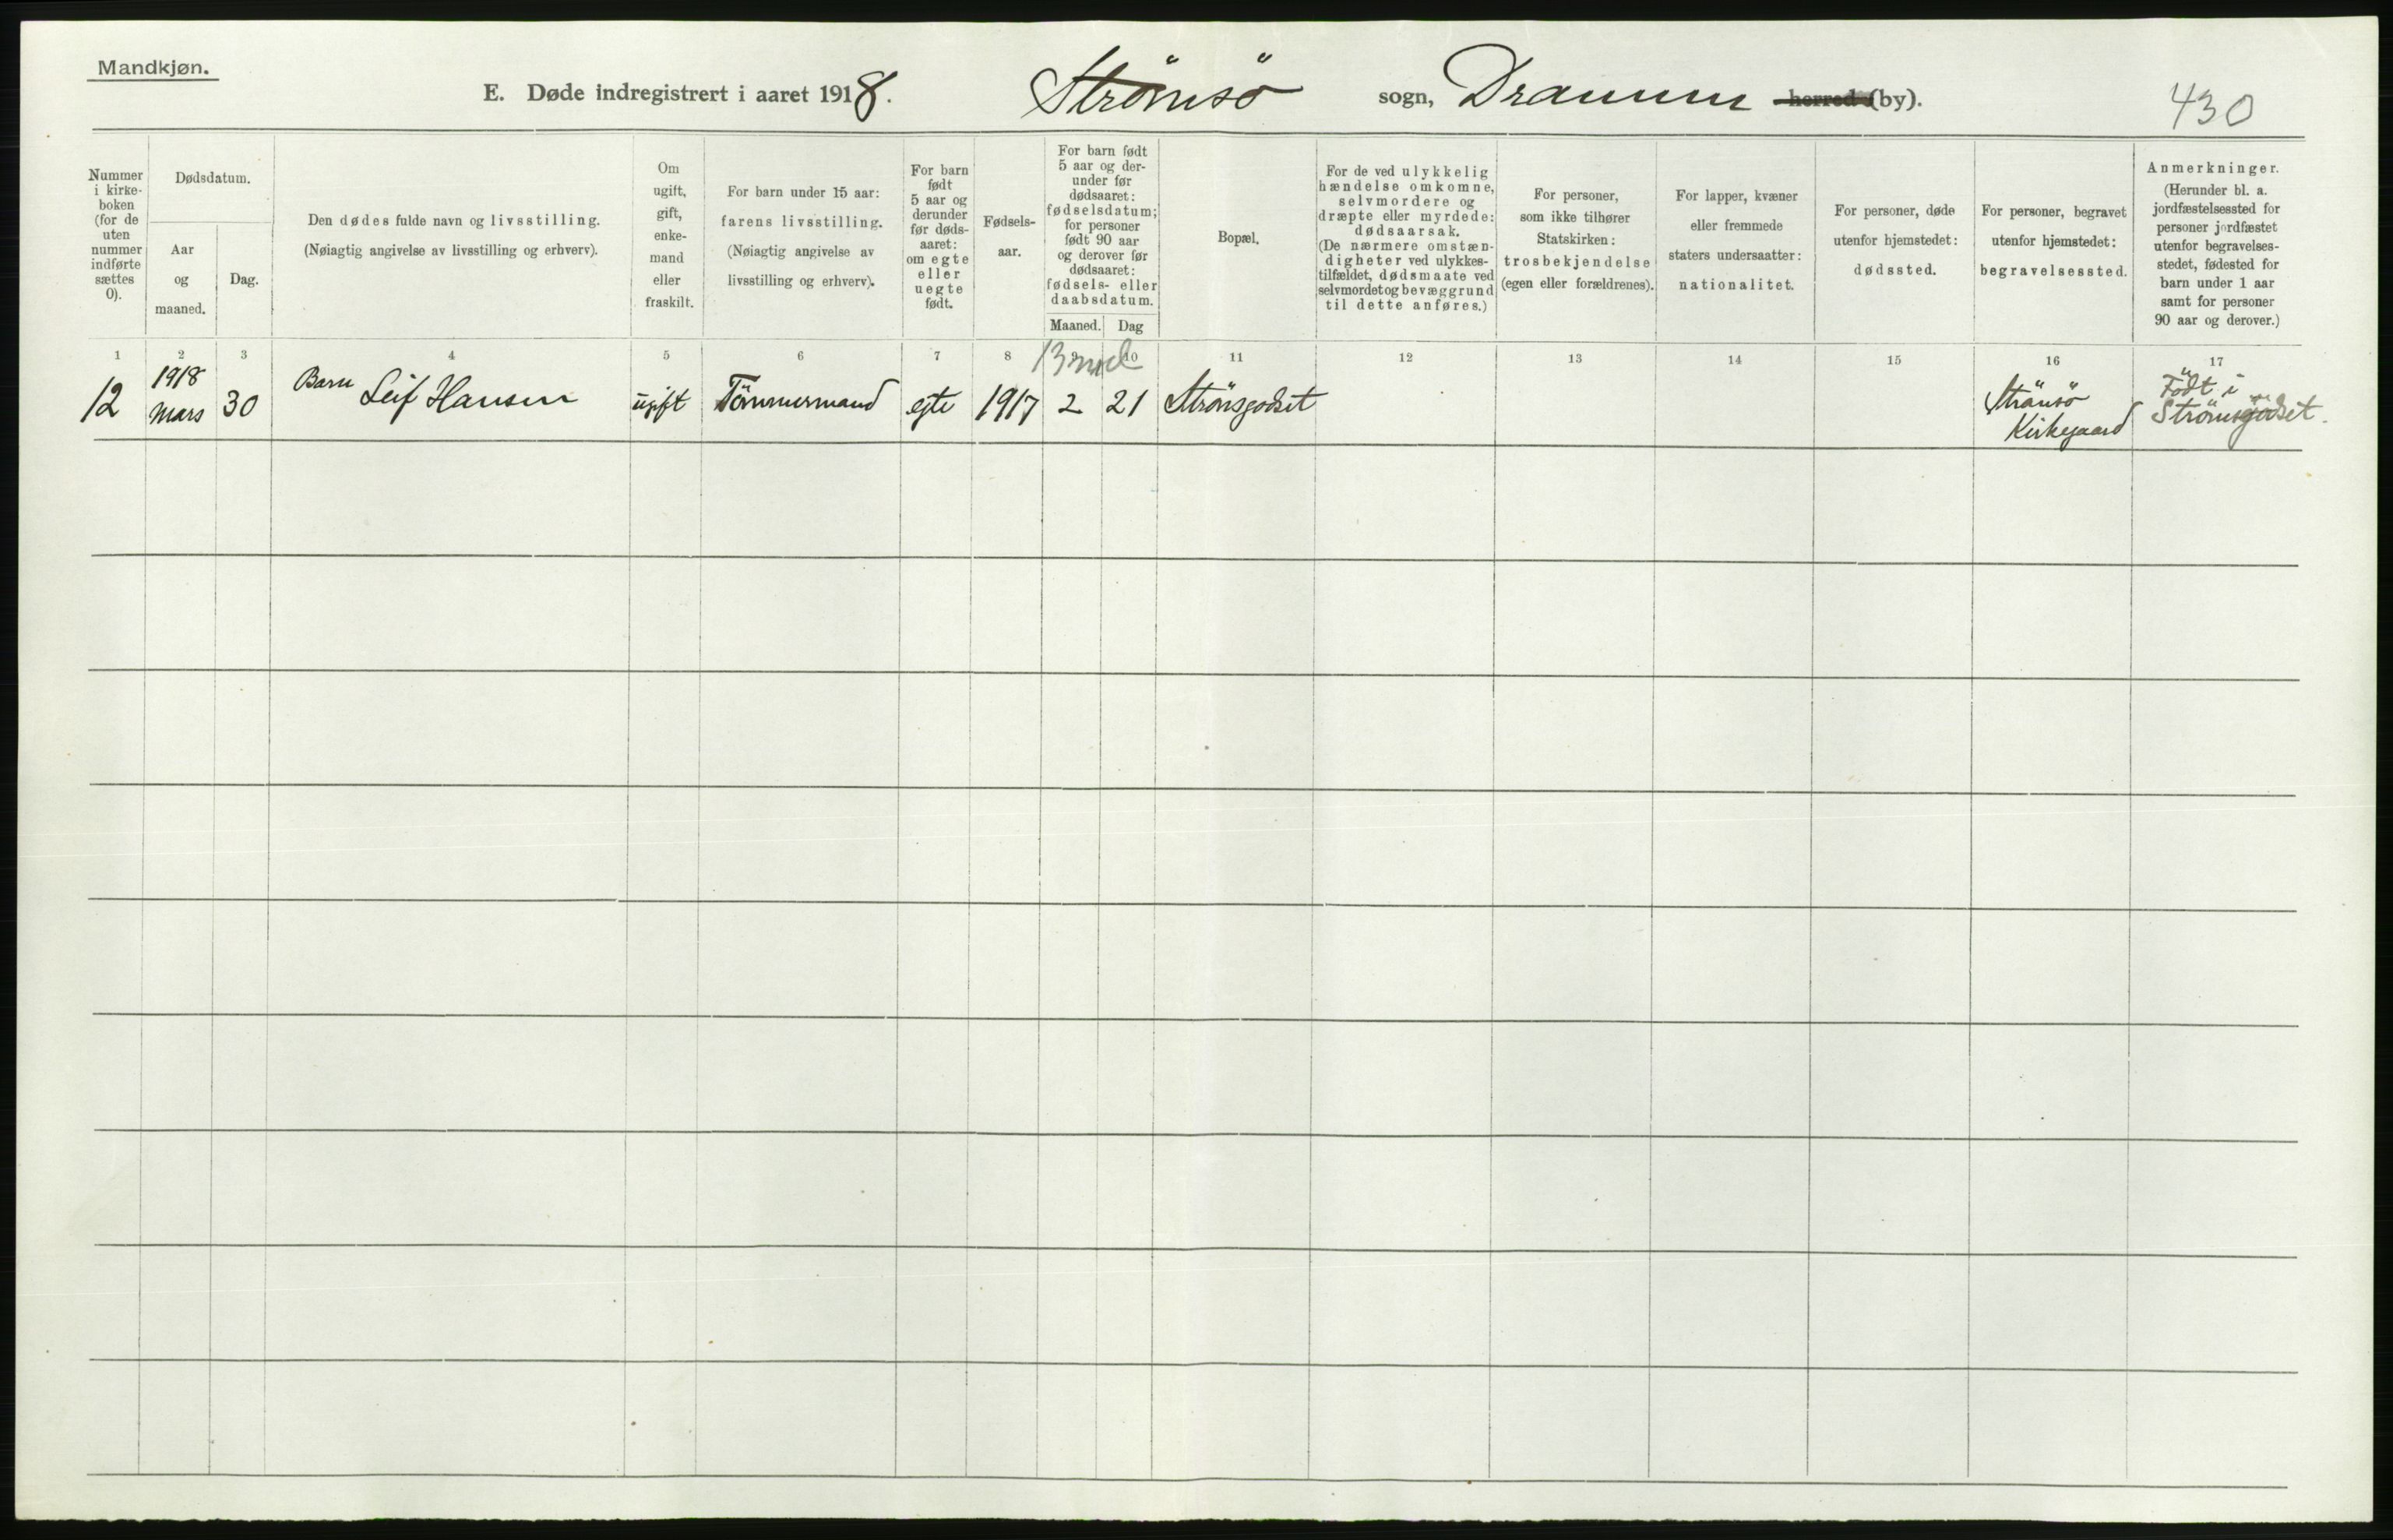 Mandkjøn.
E. Døde indregistrert i aaret 1918. Strömsö sogn, Drammen herred (by).
430
Nummer
i kirke-
boken
(for de
uten
nummer
indførte
sættes
0).
Dødsdatum.
Aar
og
maaned.
Dag.
Den dødes fulde navn og livsstilling.
(Nøiagtig angivelse av livsstilling og erhverv).
Om
ugift,
gift,
enke-
mand
eller
fraskilt.
For barn under 15 aar:
farens livsstilling.
(Nøiagtig angivelse av
livsstilling og erhverv).
For barn
født
5 aar og
derunder
før døds-
aaret:
om egte
eller
uegte
født.
Fødsels-
aar.
For barn født
5 aar og der-
under før
dødsaaret:
fødselsdatum;
for personer
født 90 aar
og derover før
dødsaaret:
fødsels- eller
daabsdatum.
Maaned. Dag
Bopæl.
For de ved ulykkelig
hændelse omkomne,
selvmordere og
dræpte eller myrdede:
dødsaarsak.
(De nærmere omstæn-
digheter ved ulykkes-
tilfældet, dødsmaate ved
selvmordet og bevæggrund
til dette anføres.)
For personer,
som ikke tilhører
Statskirken:
trosbekjendelse
(egen eller forældrenes).
For lapper, kvæner
eller fremmede
staters undersaatter:
nationalitet.
For personer, døde
utenfor hjemstedet:
dødssted.
For personer, begravet
utenfor hjemstedet:
begravelsessted.
Anmerkninger.
(Herunder bl. a.
jordfæstelsessted for
personer jordfæstet
utenfor begravelses-
stedet, fødested for
barn under 1 aar
samt for personer
90 aar og derover.)
1 2 3 4 5 6 7 8 9 10 11 12 13 14 15 16 17
13 md
12
1918
Mars
30
Barn Leif Hansen
ugift
Tömmermand
egte
1917
2
21
Strömsgodset
Strömsö
Kirkegaard
Födt i
Strömsgodset.